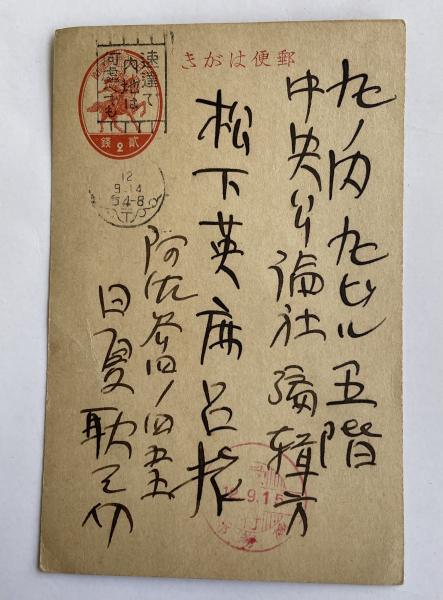 郵便はがき
貳錢
速達で
内地は
何處へでも
12
9.14
丸ノ内丸ビル五階
中央公論社編輯方
松下英麻呂様
阿佐谷四ノ四五五
日夏耿之介
12.9.15